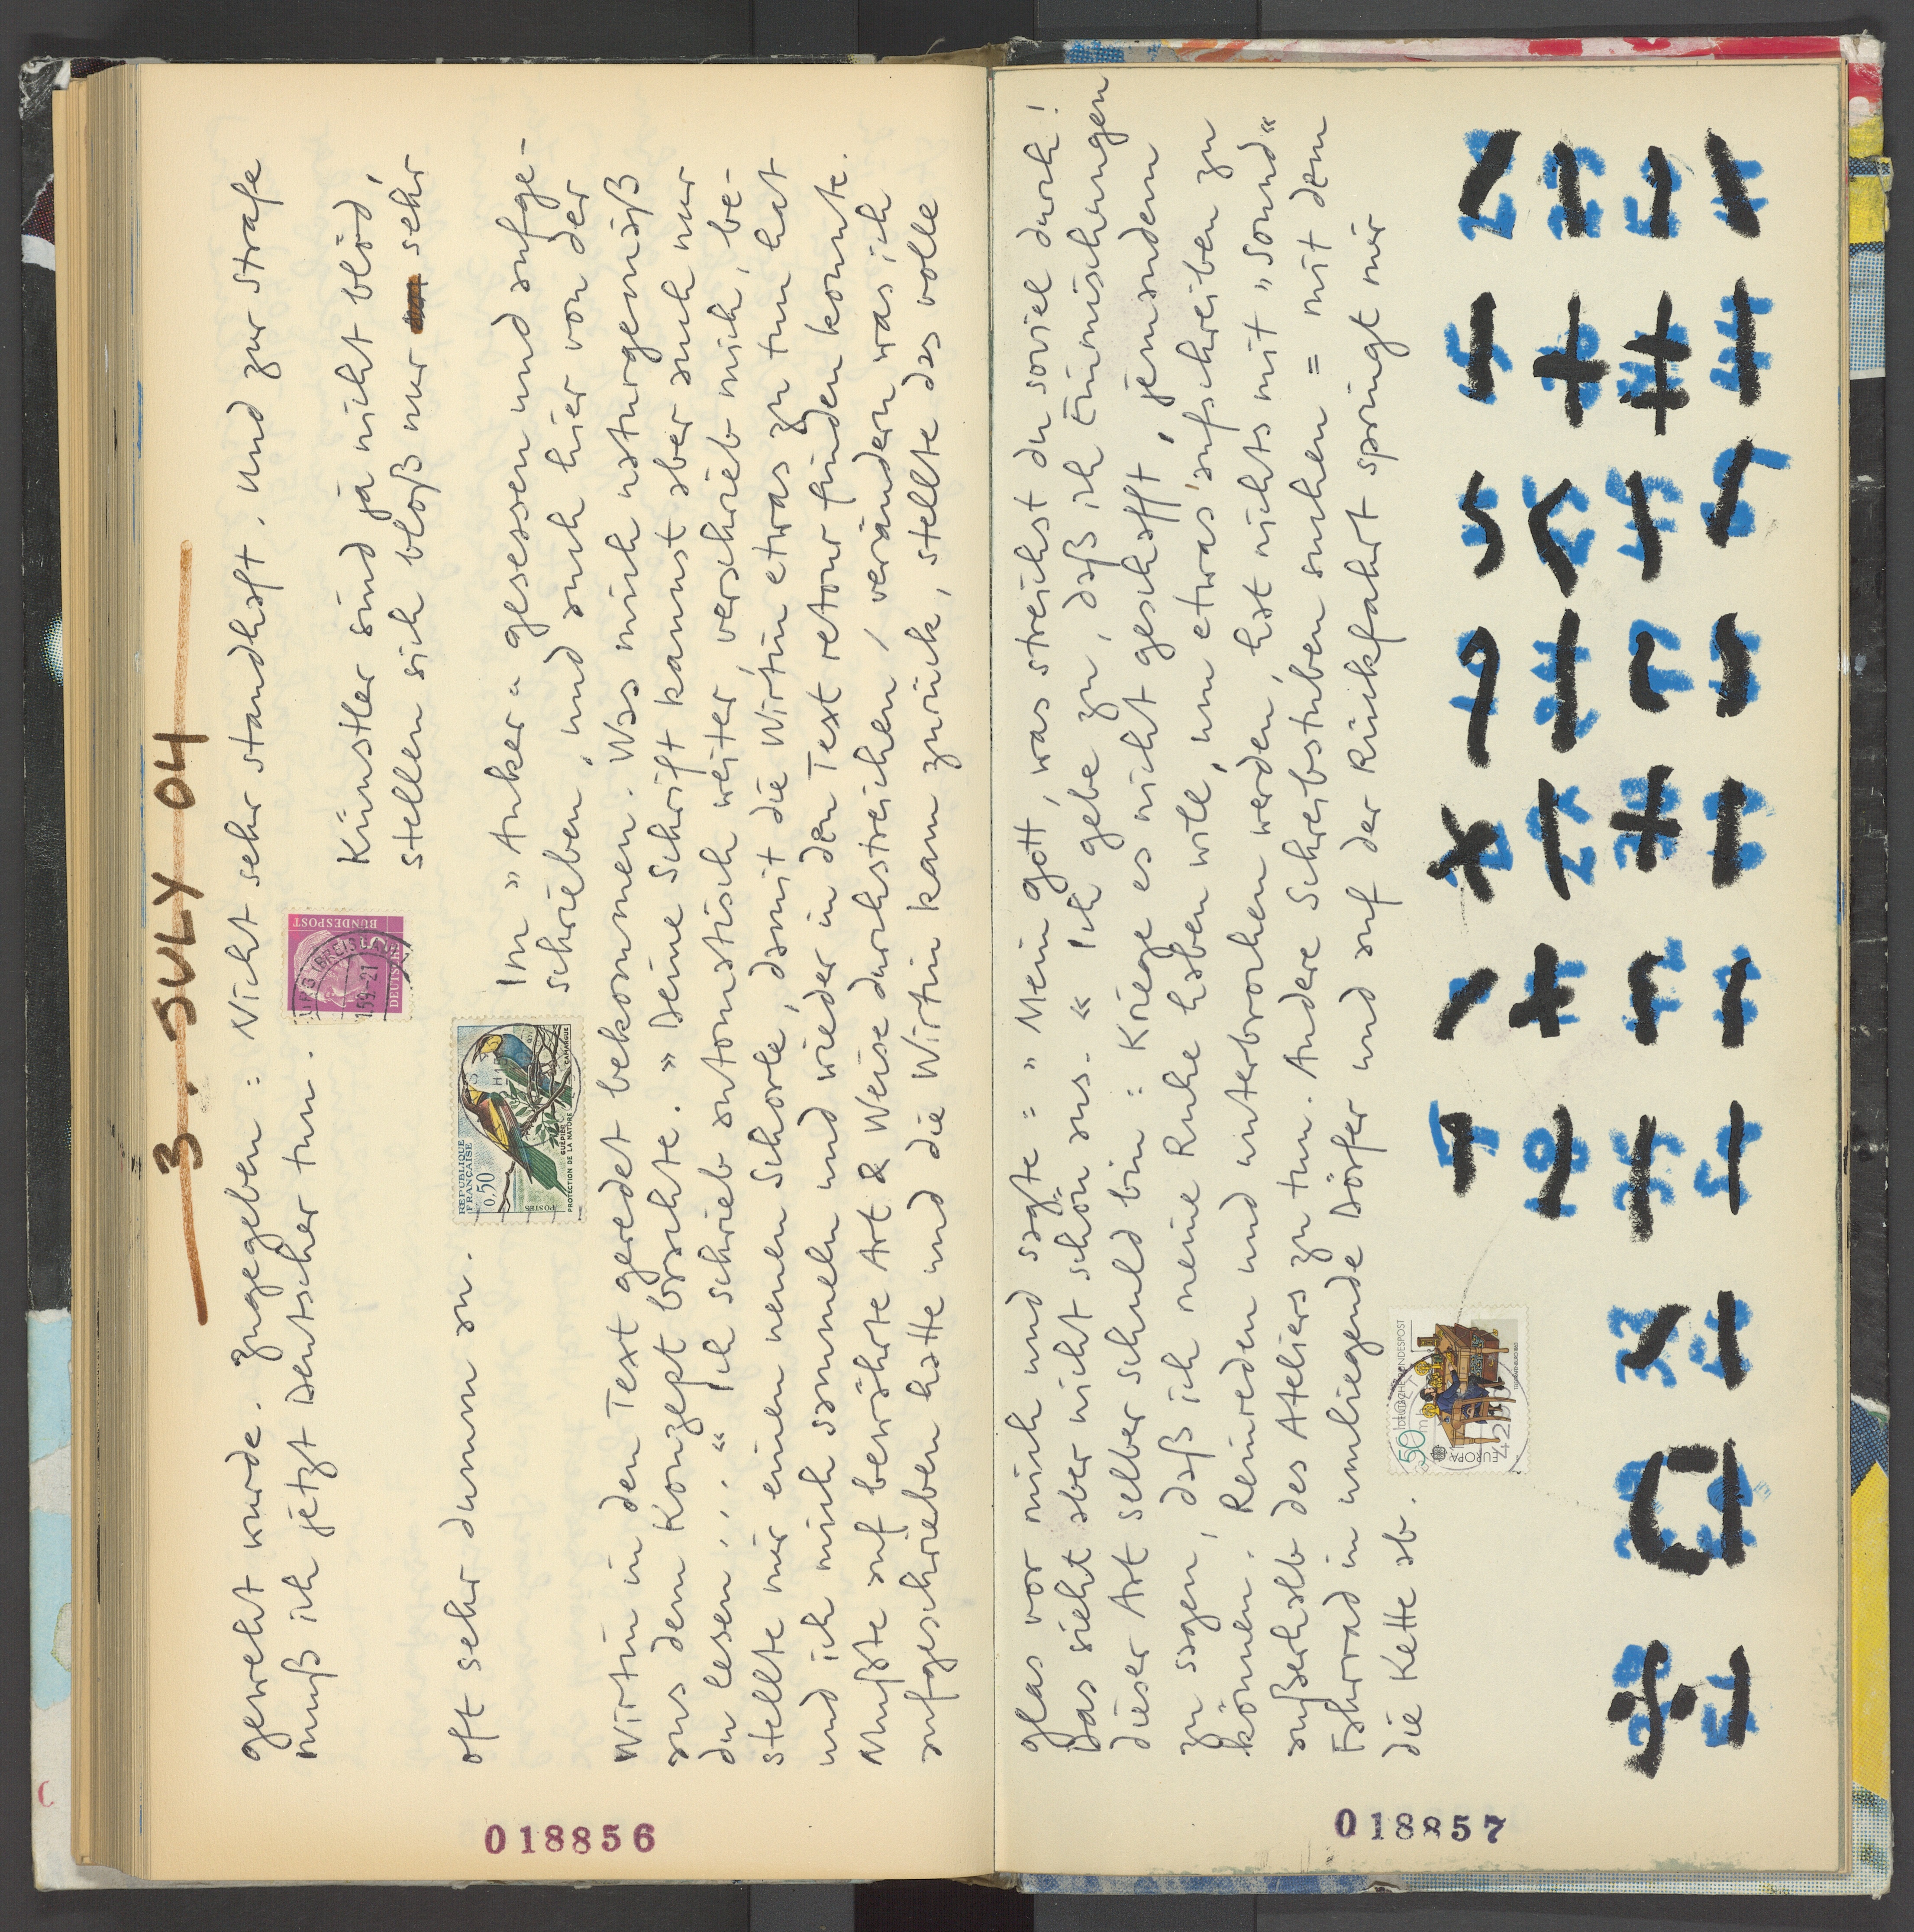 3. JULY 04
geweht wurde. Zugegeben: Nicht sehr standhaft. Und zur Strafe
muß ich jetzt Deutscher tun.
Künstler sind ja nicht blöd,
stellen sich bloß nur sehr
oft sehr dumm an.
Im "Anker" gesessen und aufge-
schrieben, und auch hier von der
Wirtin in den Text geredet bekommen. Was mich naturgemäß
aus dem Konzept brachte. "Deine Schrift kannst aber auch nur
du lesen..." Ich schrieb automatisch weiter, verschrieb mich, be-
stellte mir einen neuen Schorle, damit die Wirtin etwas zu tun hat
und ich mich sammeln und wieder in den Text retour finden konnte.
Mußte auf bewährte Art & Weise durchstreichen, verändern was ich
aufgeschrieben hatte und die Wirtin kam zurück, stellte das volle
018856
Glas vor mich und sagte: "Mein Gott, was streichst du soviel durch!
Das sieht aber nicht schön aus." Ich gebe zu, daß ich Einmischungen
dieser Art selber schuld bin: Kriege es nicht geschafft, jemandem
zu sagen, daß ich meine Ruhe haben will, um etwas aufschreiben zu
können. Reinreden und unterbrochen werden, hat nichts mit "Sound"
außerhalb des Ateliers zu tun. Andere Schreibstuben suchen = mit dem
Fahrrad in umliegende Dörfer und auf der Rückfahrt springt mir
die Kette ab.
018857
REPUBLIQUE
FRANCAISE
0,50
POSTES
GUEPIER
CAMARGUE
PROTECTION DE LA NATURE
DEUTSCHE
BUNDESPOST
DEUTSCHE BUNDESPOST
50
EUROPA